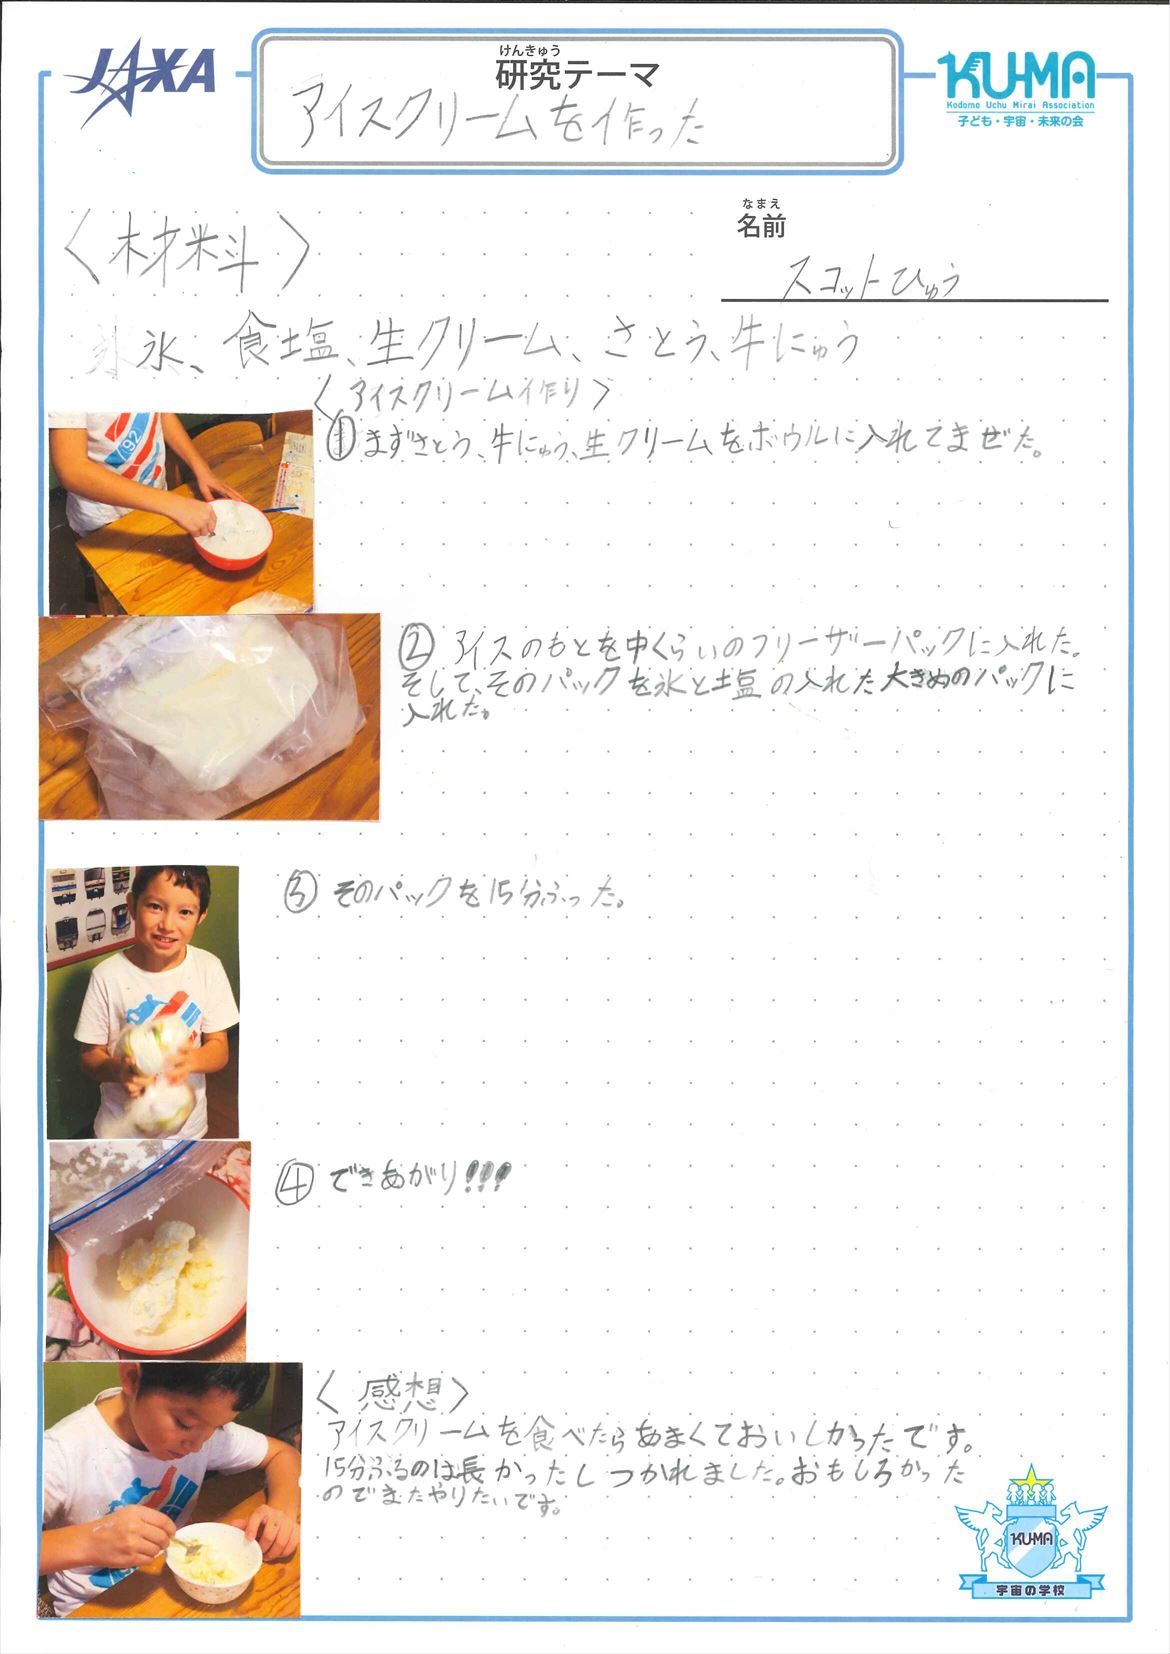 JAXA
けんきゅう
研究テーマ
アイスクリームを作った
KU-MA
Kodomo Uchu Mirai Association
子ども・宇宙・未来の会
〈材料〉
なまえ
名前
スコットひゅう
氷、食塩、生クリーム、さとう、牛にゅう
〈アイスクリーム作り〉
①まずさとう、牛にゅう、生クリームをボウルに入れてまぜた。
92
②アイスのもとを中くらいのフリーザーパックに入れた。
そして、そのパックを氷と塩の入れた大きめのパックに
入れた。
③そのパックを15分ふった。
④できあがり!!!
〈感想〉
アイスクリームを食べたらあまくておいしかったです。
15分ふるのは長かったしつかれました。おもしろかった
のでまたやりたいです。
KU-MA
宇宙の学校